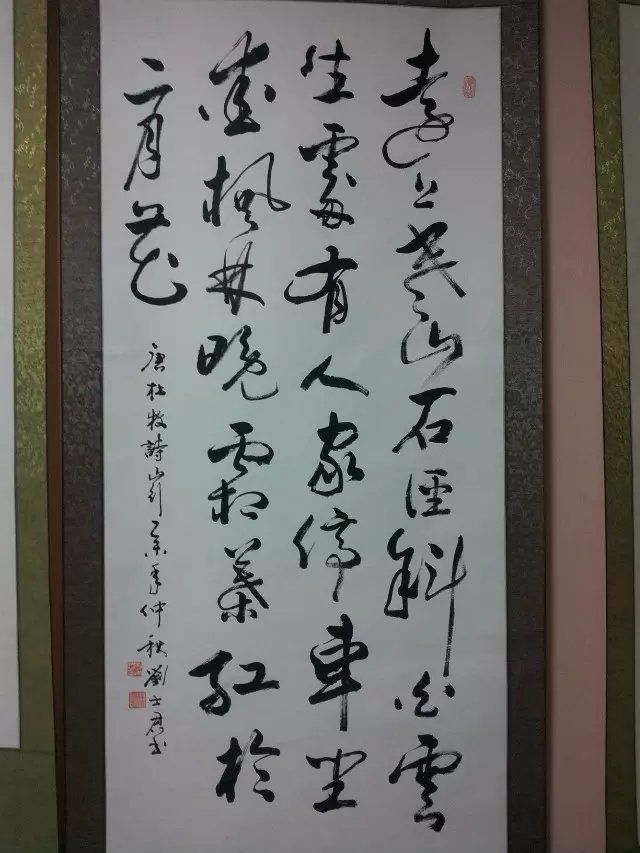 遠上寒山石徑斜白雲
生處有人家停車坐
愛楓林晚霜葉紅於
二月花
唐杜牧詩山行乙未年仲秋劉士君书